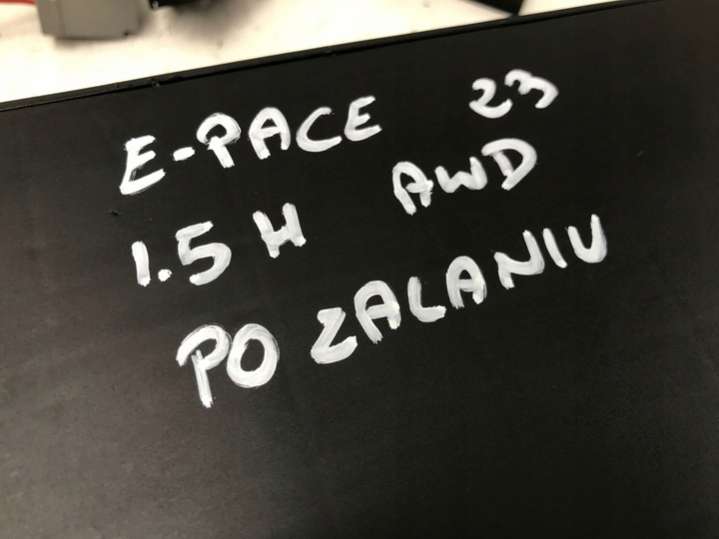 E-PACE 23
1.5 H AWD
PO ZALANIU